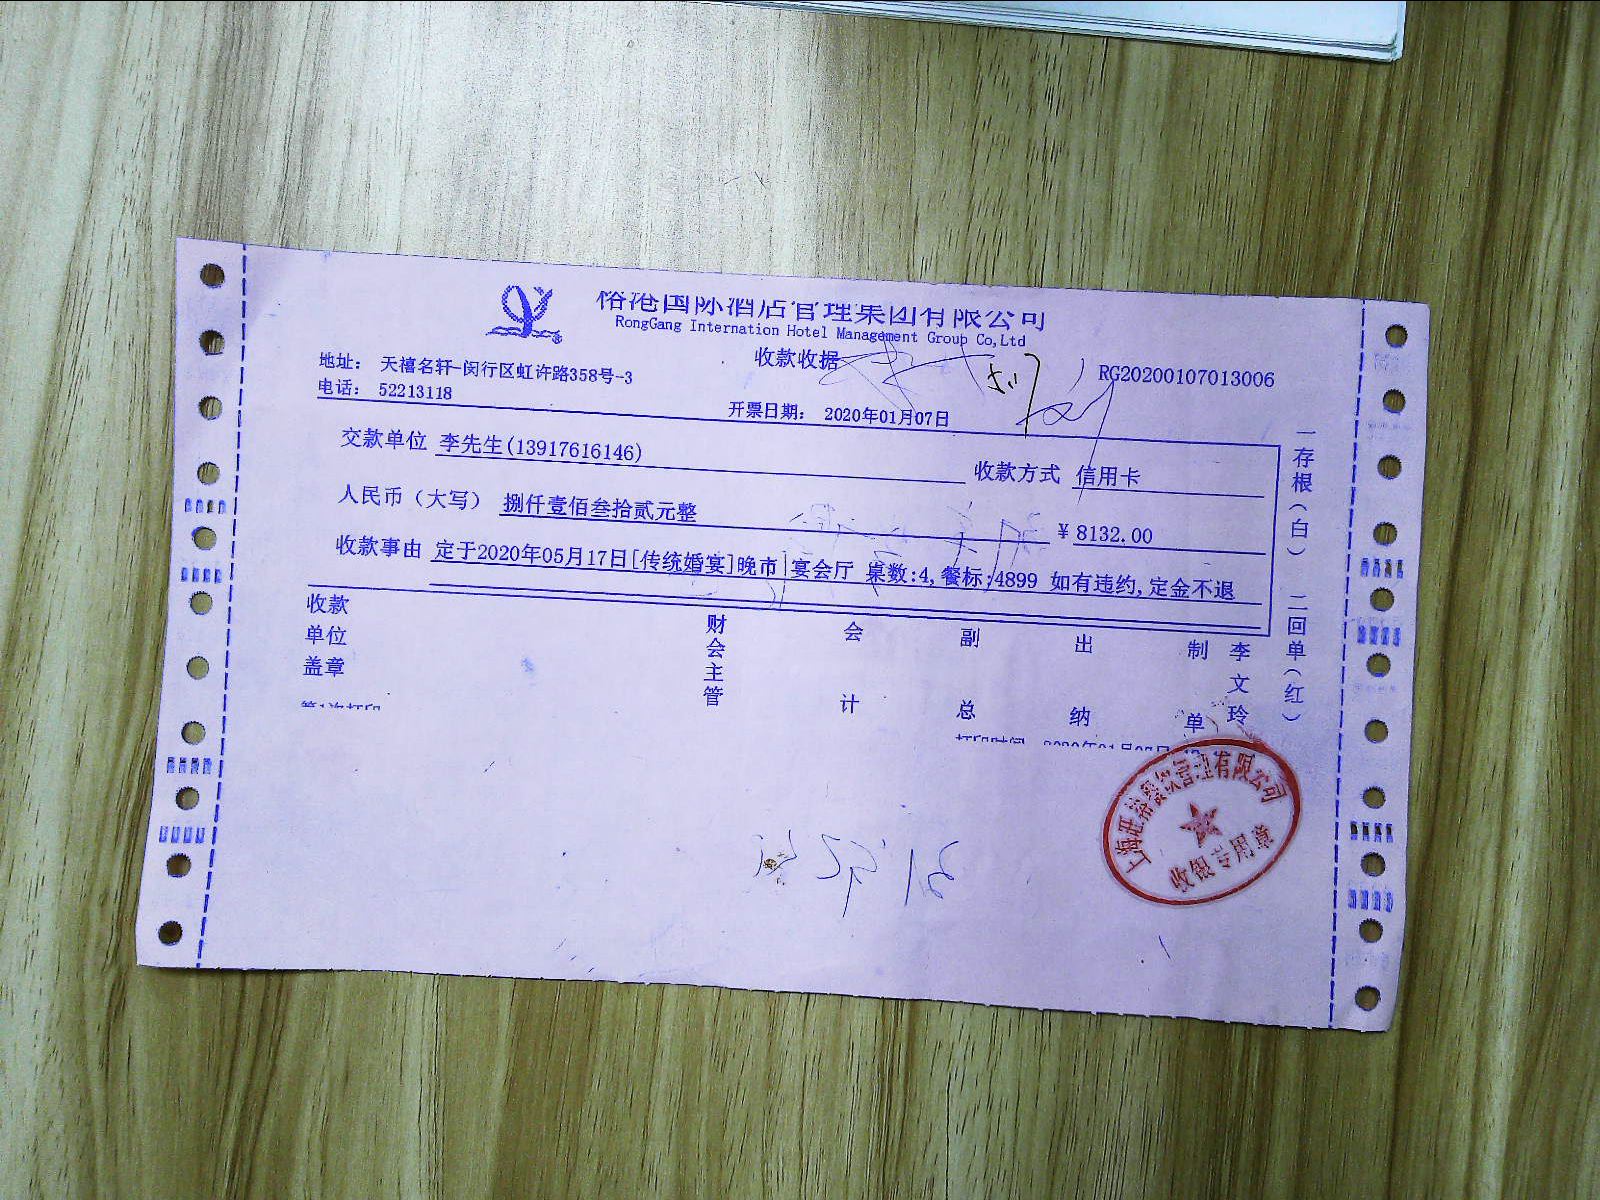 裕港国际酒店管理集团有限公司
RongGang Internation Hotel Management Group Co,Ltd
收款收据
RG20200107013006
地址： 天禧名轩-闵行区虹许路358号-3
电话： 52213118
开票日期： 2020年01月07日
交款单位 李先生(13917616146)
收款方式 信用卡
人民币（大写） 捌仟壹佰叁拾贰元整
¥8132.00
收款事由 定于2020年05月17日[传统婚宴]晚市|宴会厅 桌数:4,餐标:4899 如有违约,定金不退
一存根（白） 二回单（红）
收款单位盖章
财会主管
会计
副总
出纳
制单
李文玲
第1次打印
打印时间 2020年01月07日
上海旺裕餐饮管理有限公司
收银专用章